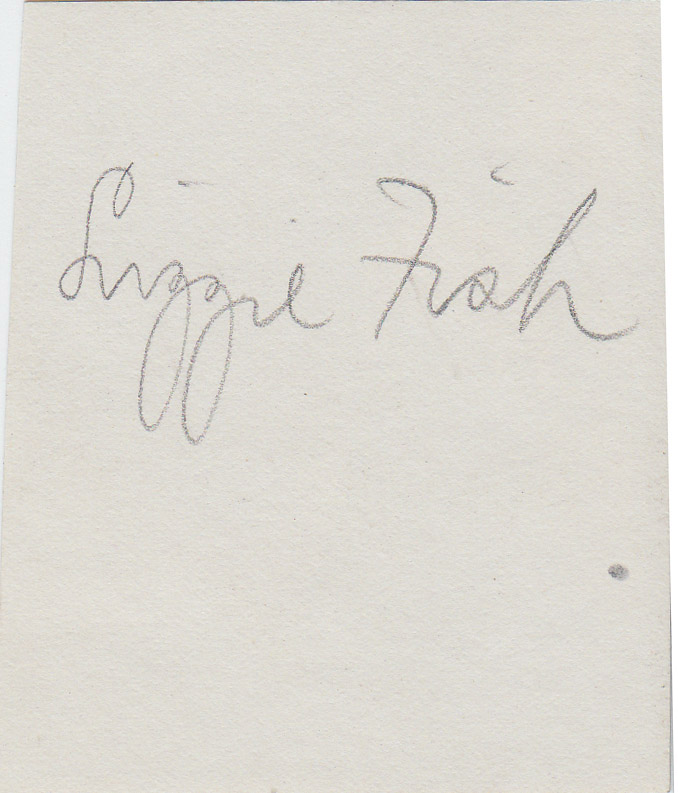 Lizzie Fish